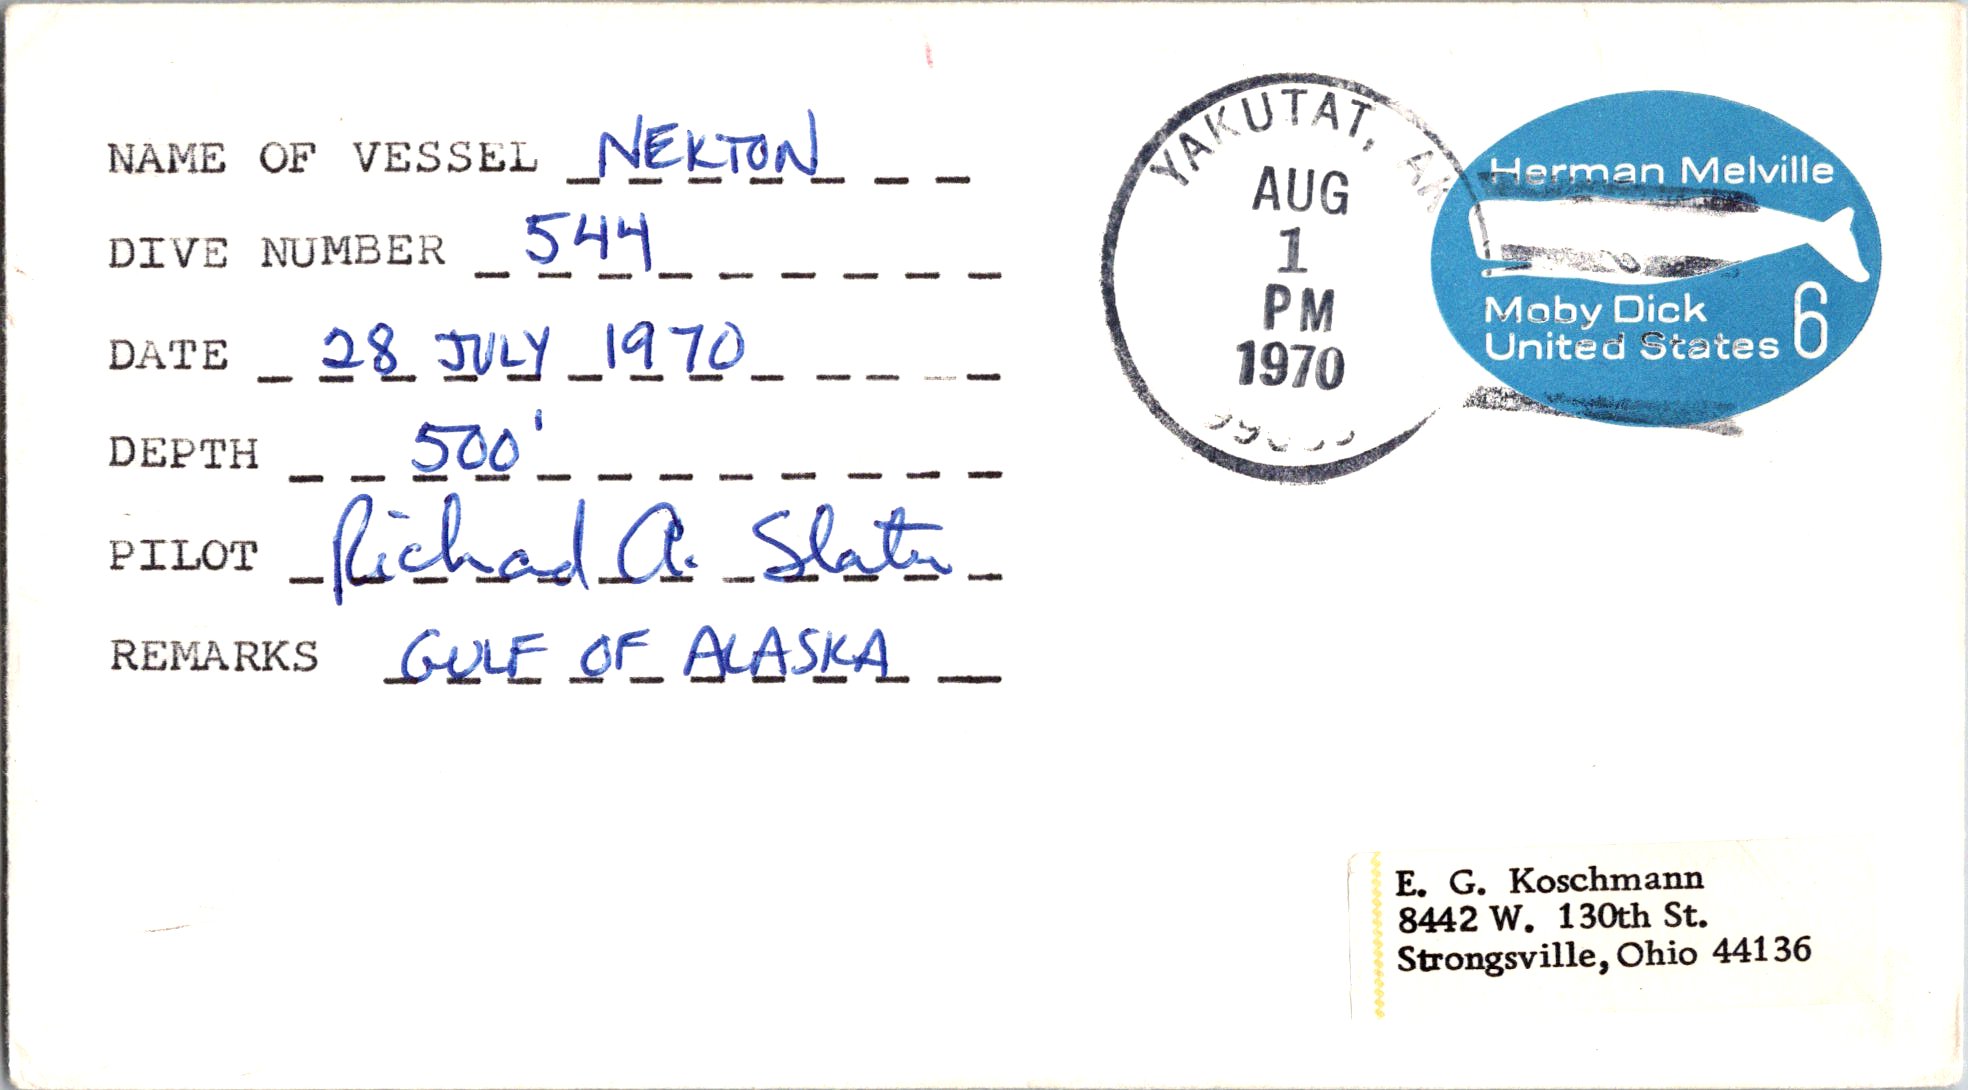 NAME OF VESSEL NEKTON
DIVE NUMBER 544
DATE 28 JULY 1970
DEPTH 500'
PILOT Richard A. Slater
REMARKS GULF OF ALASKA
YAKUTAT, AK
AUG
1
PM
1970
Herman Melville
Moby Dick
United States 6
E. G. Koschmann
8442 W. 130th St.
Strongsville, Ohio 44136